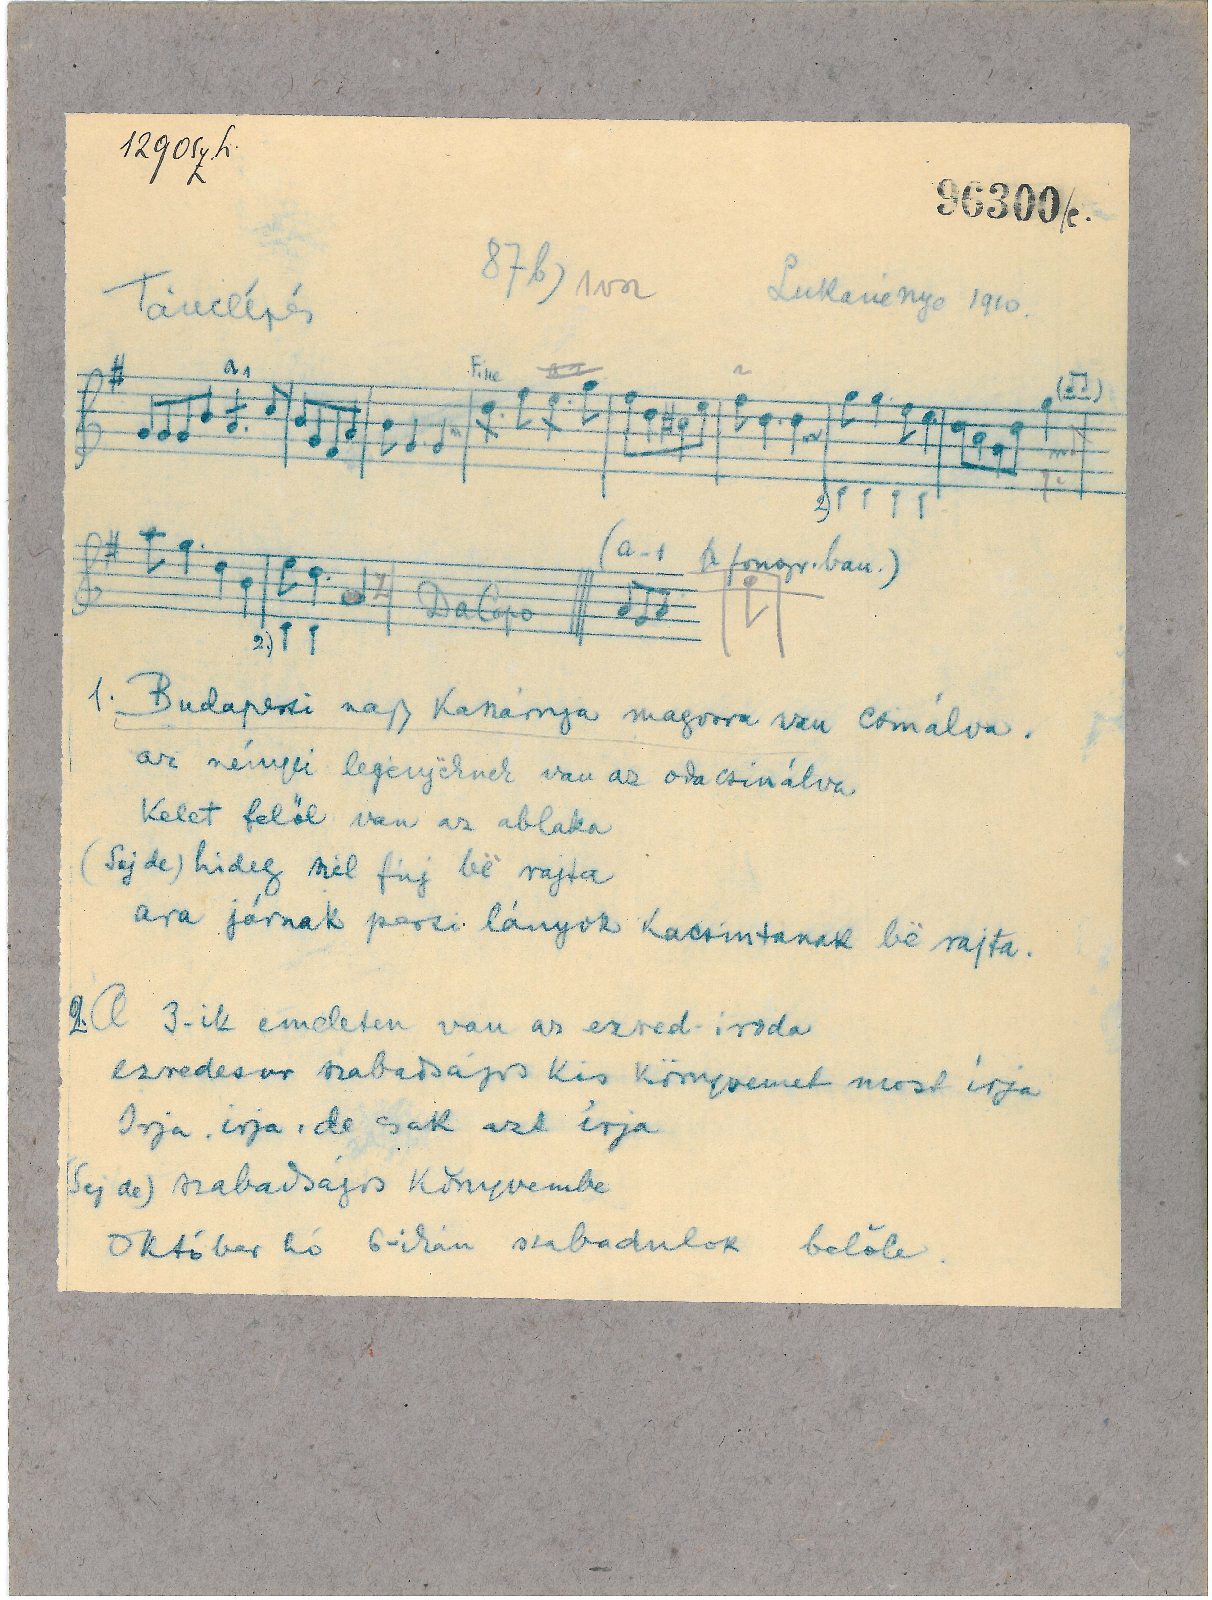 1290
96300/c.
87b)
Tánclépés Lukanénye 1910.
a 1
Fine
2)
(a-1 fonogr.ban.)
Da Capo
2.)
1. Budapesti naß Kaszárnya magosra van csinálva.
az nényei legényëknek van az oda csinálva
Kelet felöl van az ablaka
(Sej de) hideg szél fúj bë rajta
ara járnak pesti lányok kacsintanak bë rajta.
2. A 3-ik emeleten van az ezred-iroda
ezredesur szabadságos kis könyvemet most írja
Irja, irja, de csak azt írja
(Sej de) szabadságos Könyvembe
Október hó 6-ikán szabadulok belőle.